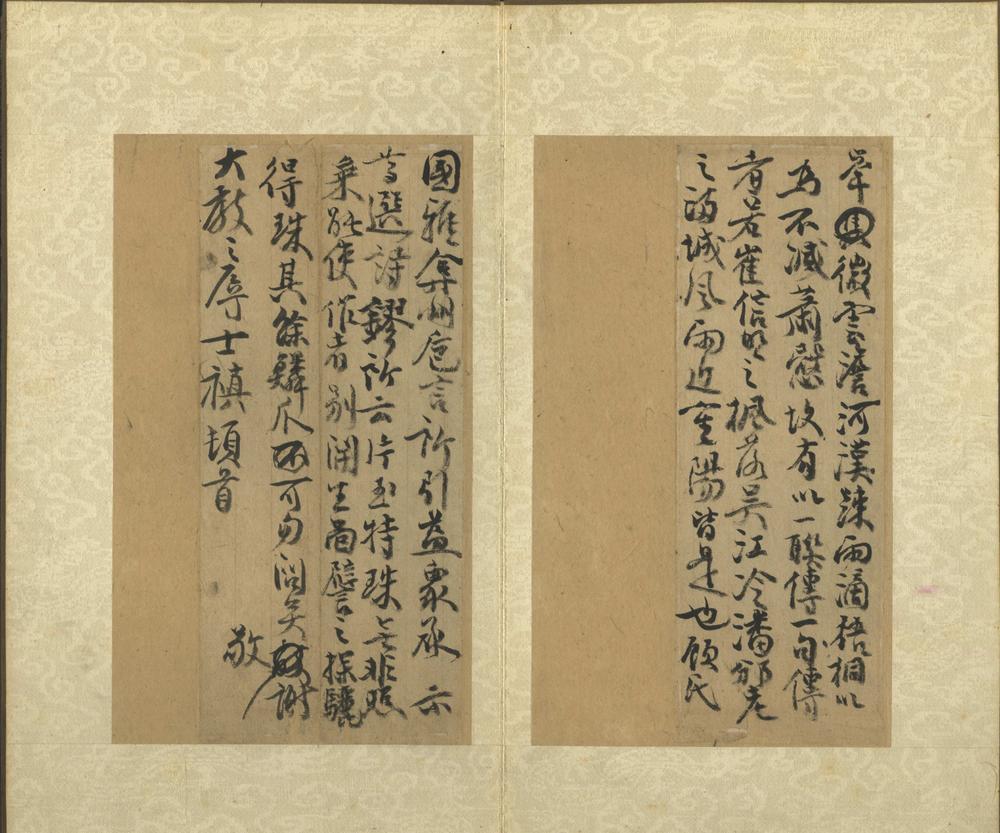 舉其微雲澹河漢疎雨滴梧桐以
為不減蕭愨故有以一聯傳一句傳
者若崔信明之楓落吳江冷潘邠老
之滿城風雨近重陽皆是也顧氏
國雅弇州巵言所引益衆承 示
蓴選詩鏐所云片玉特珠無非照
乗能使作者別開生面譬之探驪
得珠其餘鱗爪不可勿問矣敬謝
敬
大教之辱士禛頓首